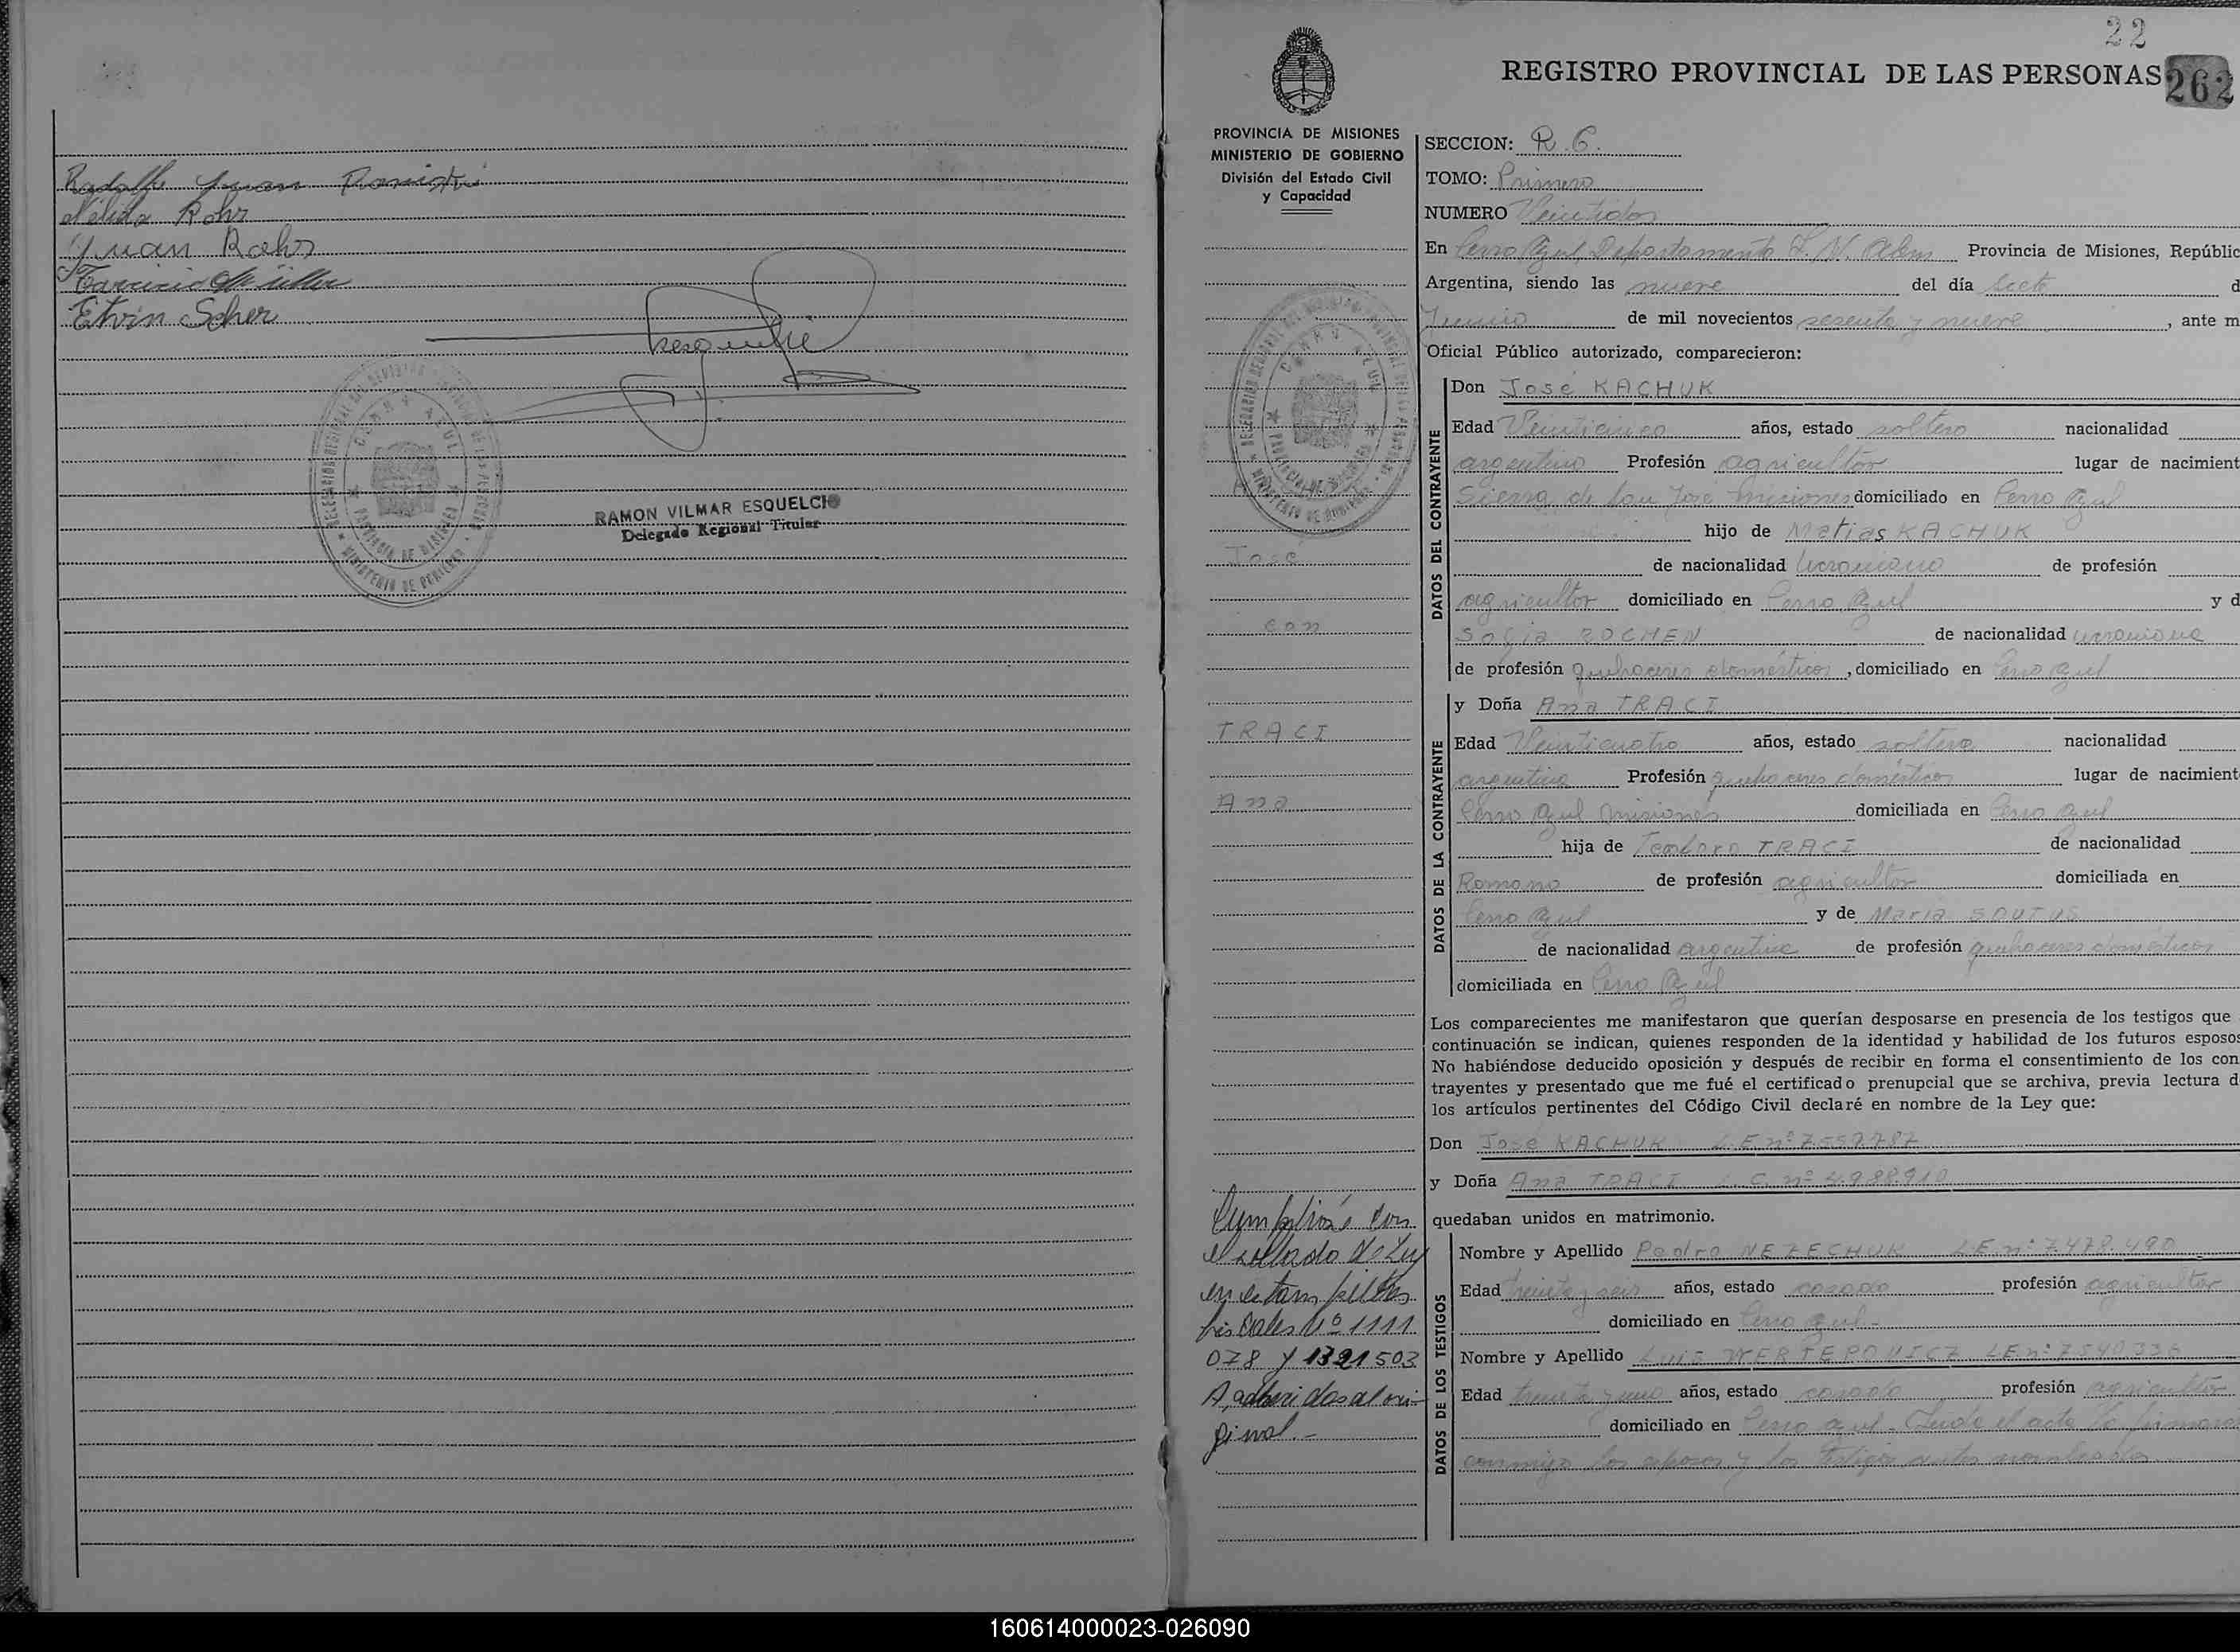 Rodolfo Juan
Nélida Rohr
Juan Rohr
Müller
Etvin Scher
RAMON VILMAR ESQUELCIO
Delegado Regional Titular
22
REGISTRO PROVINCIAL DE LAS PERSONAS
262
PROVINCIA DE MISIONES
MINISTERIO DE GOBIERNO
División del Estado Civil
y Capacidad
José
con
TRACI
Ana
Cumplióse con
el sellado de Ley
en estampillas
fiscales Nº 1111
078 y 1321503
A, adheridas al ori-
ginal.-
SECCION: R.C.
TOMO: Primero
NUMERO Veintidos
En Cerro Azul, Departamento L. N. Alem Provincia de Misiones, Repúblic
Argentina, siendo las nueve del día siete d
Junio de mil novecientos sesenta y nueve, ante m
Oficial Público autorizado, comparecieron:
DATOS DEL CONTRAYENTE
Don José KACHUK
Edad Veinticinco años, estado soltero nacionalidad
argentino Profesión agricultor lugar de nacimient
Sierra de San José Misiones domiciliado en Cerro Azul
hijo de Matias KACHUK
de nacionalidad Ucraniano de profesión
agricultor domiciliado en Cerro Azul y d
Sofia ROCHEN de nacionalidad ucraniana
de profesión quehaceres domésticos, domiciliado en Cerro Azul
DATOS DE LA CONTRAYENTE
y Doña Ana TRACI
Edad Veinticuatro años, estado soltera nacionalidad
argentina Profesión quehaceres domésticos lugar de nacimient
Cerro Azul Misiones domiciliada en Cerro Azul
hija de Teodoro TRACI de nacionalidad
Romano de profesión agricultor domiciliada en
Cerro Azul y de Maria SOUTUS
de nacionalidad argentina de profesión quehaceres domésticos
domiciliada en Cerro Azul
Los comparecientes me manifestaron que querían desposarse en presencia de los testigos que
continuación se indican, quienes responden de la identidad y habilidad de los futuros esposos
No habiéndose deducido oposición y después de recibir en forma el consentimiento de los con
trayentes y presentado que me fué el certificado prenupcial que se archiva, previa lectura d
los artículos pertinentes del Código Civil declaré en nombre de la Ley que:
Don José KACHUK L.E. nº 7.557.787
y Doña Ana TRACI L.C. nº 4.988.910
quedaban unidos en matrimonio.
DATOS DE LOS TESTIGOS
Nombre y Apellido Pedro NEZECHUK L.E. nº 7.478.490
Edad treinta y seis años, estado casado profesión agricultor
domiciliado en Cerro Azul.-
Nombre y Apellido Luis L.E. nº 7540336
Edad treinta y uno años, estado casado profesión agricultor
domiciliado en Cerro Azul. Leida el acta la firmaron
conmigo los esposos y los testigos antes nombrados
160614000023-026090